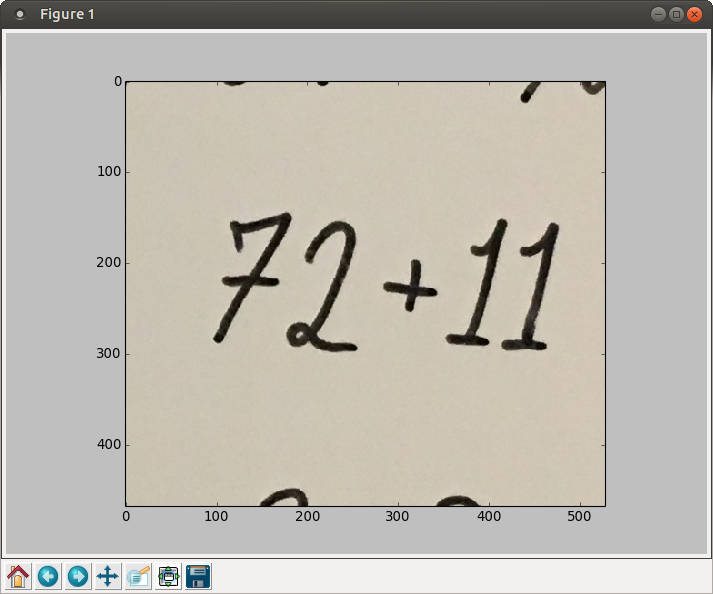 Figure 1
0
100
200
300
400
72+11
0 100 200 300 400 500